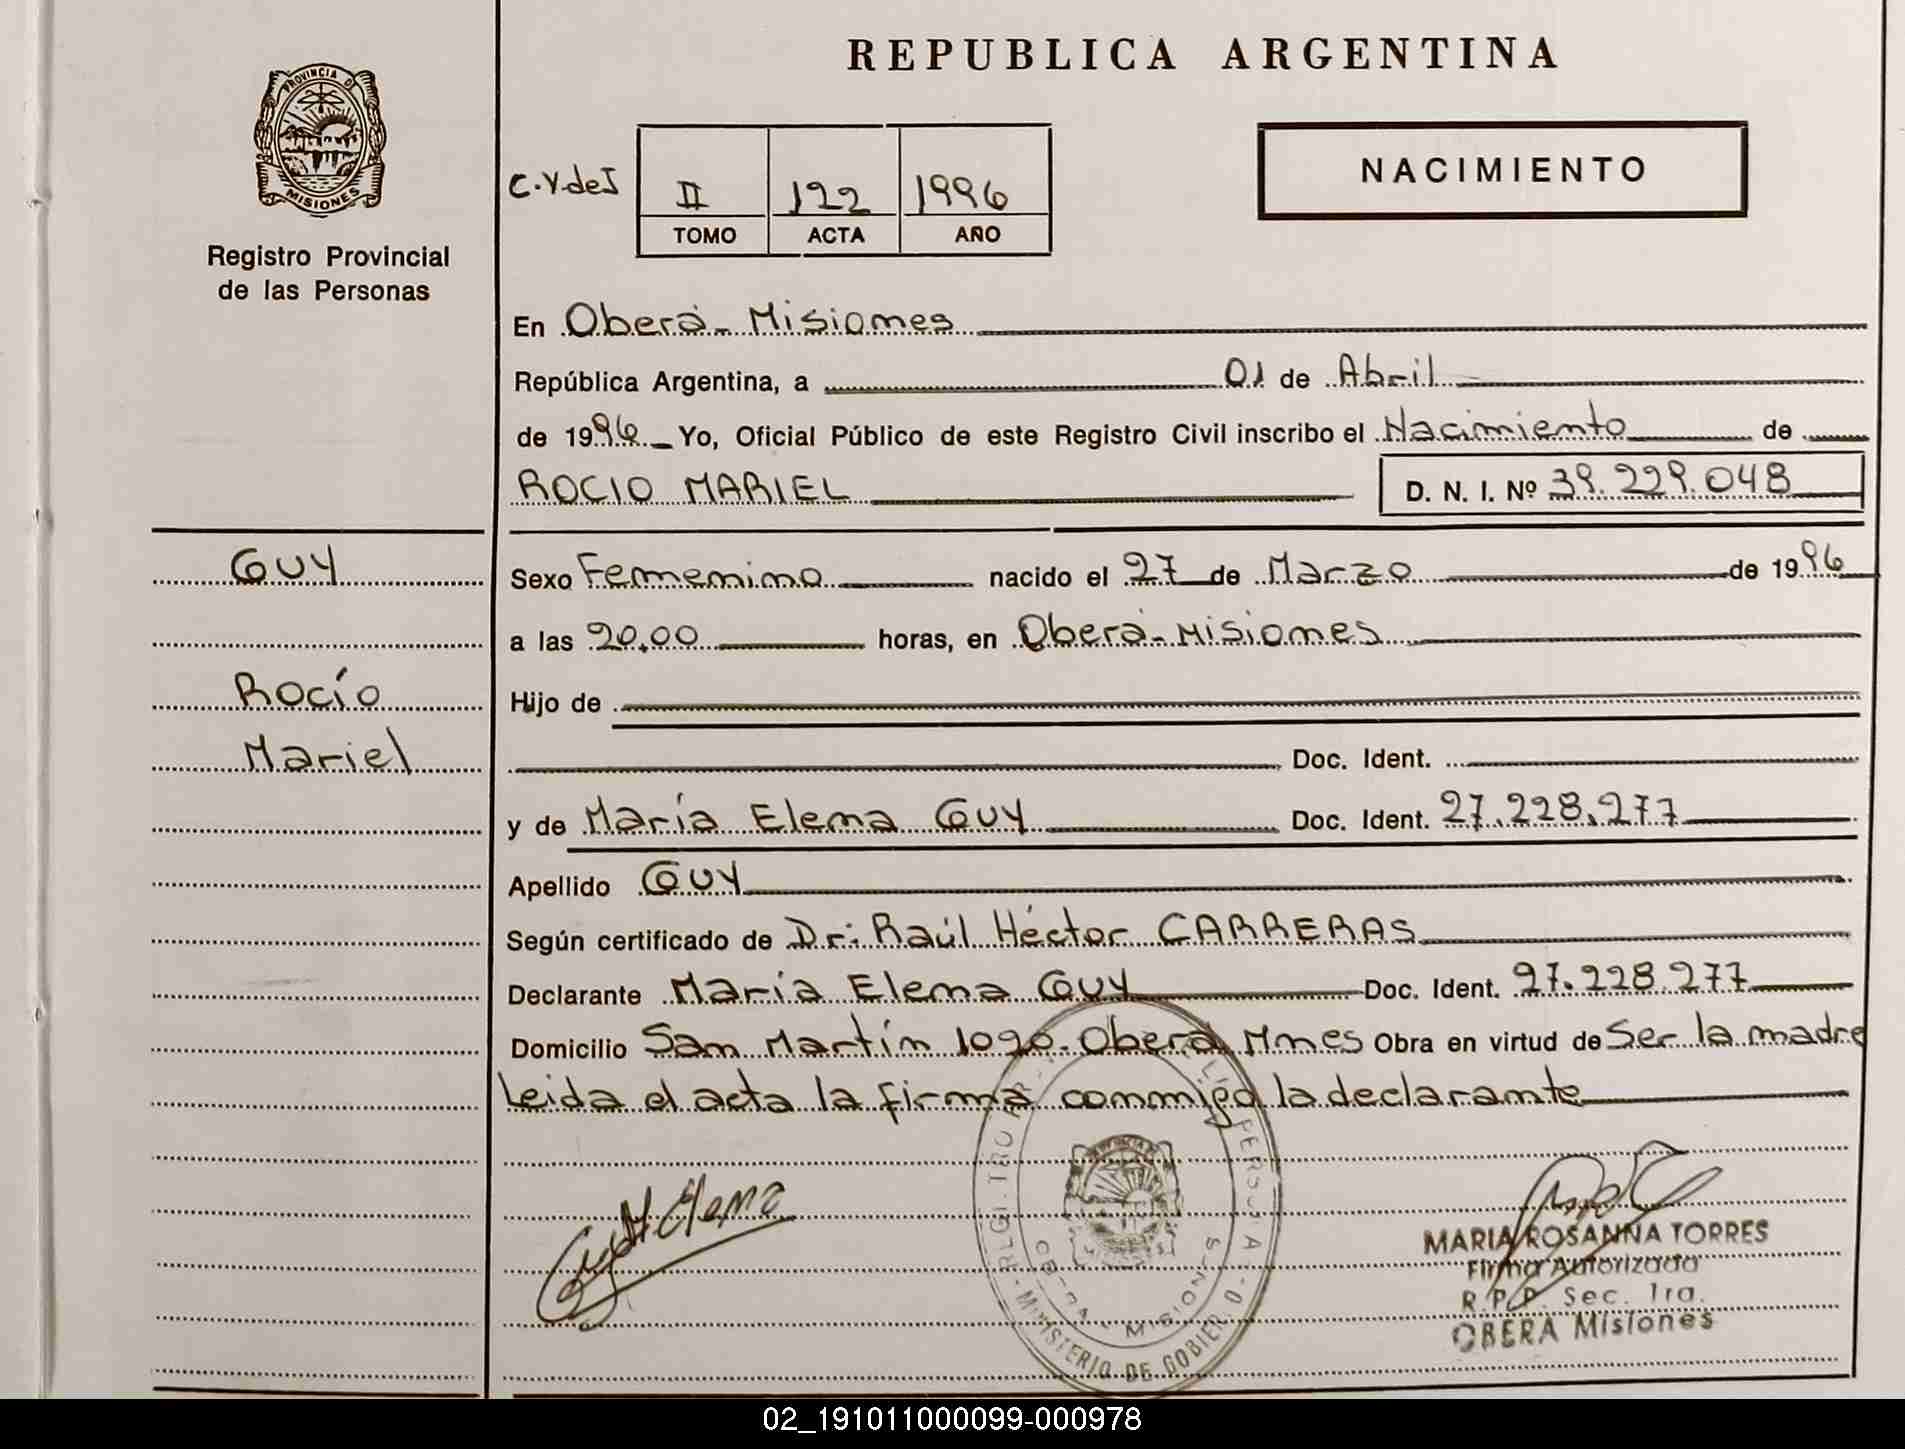 REPUBLICA ARGENTINA
PROVINCIA DE
MISIONES
Registro Provincial
de las Personas
C.Y.deI
II 122 1996
TOMO ACTA AÑO
NACIMIENTO
En Oberá - Misiones
República Argentina, a 01 de Abril
de 1996 Yo, Oficial Público de este Registro Civil inscribo el Nacimiento de
ROCIO MARIEL D. N. I. Nº 39.229.048
GUY
Rocío
Mariel
Sexo Femenino nacido el 27 de Marzo de 1996
a las 20,00 horas, en Oberá - Misiones
Hijo de
Doc. Ident.
y de María Elena GUY Doc. Ident. 27.228.277
Apellido GUY
Según certificado de Dr: Raúl Héctor CARRERAS
Declarante María Elena GUY Doc. Ident. 27.228.277
Domicilio San Martín 1090 - Oberá Mnes Obra en virtud de Ser la madre
Leida el acta la firma conmigo la declarante
Guy M. Elena
OBERA MISIONES
MINISTERIO DE GOBIERNO
MARIA ROSANNA TORRES
Firma Autorizada
R.P.P. Sec. 1ra.
OBERA Misiones
02_191011000099-000978